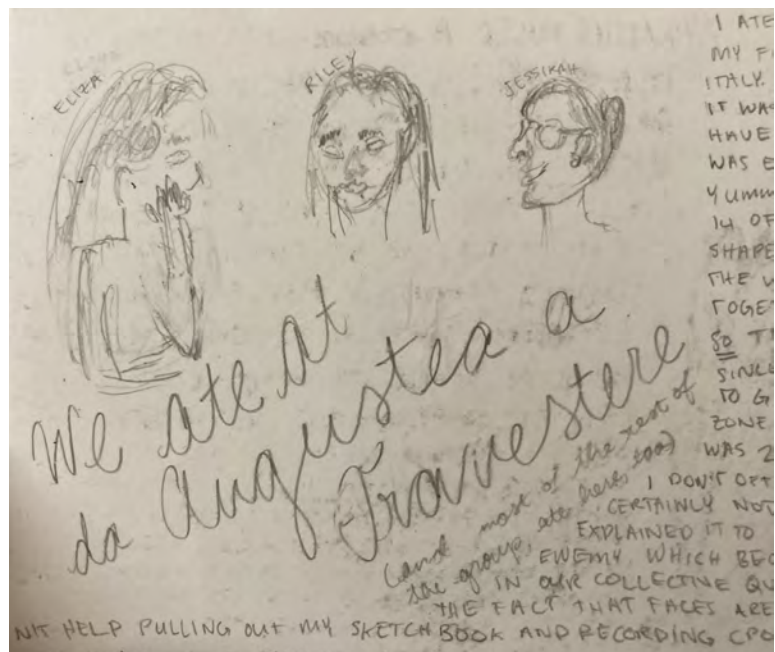 ELIZA
RILEY
JESSIKAH
We ate at
da Augustea a
Travestere
(and most of the rest of
the group, ate here, too)
I ATE
MY F
ITALY.
IT WAS
HAVE
WAS E
YUMM
14 OF
SHAPE
THE W
TOGE
SO T
SINC
TO G
ZONE
WAS 2
I DON'T OFT
CERTAINLY NOT
EXPLAINED IT TO
ENEMY, WHICH BEC
IN OUR COLLECTIVE QU
THE FACT THAT FACES ARE
N'T HELP PULLING OUT MY SKETCHBOOK AND RECORDING